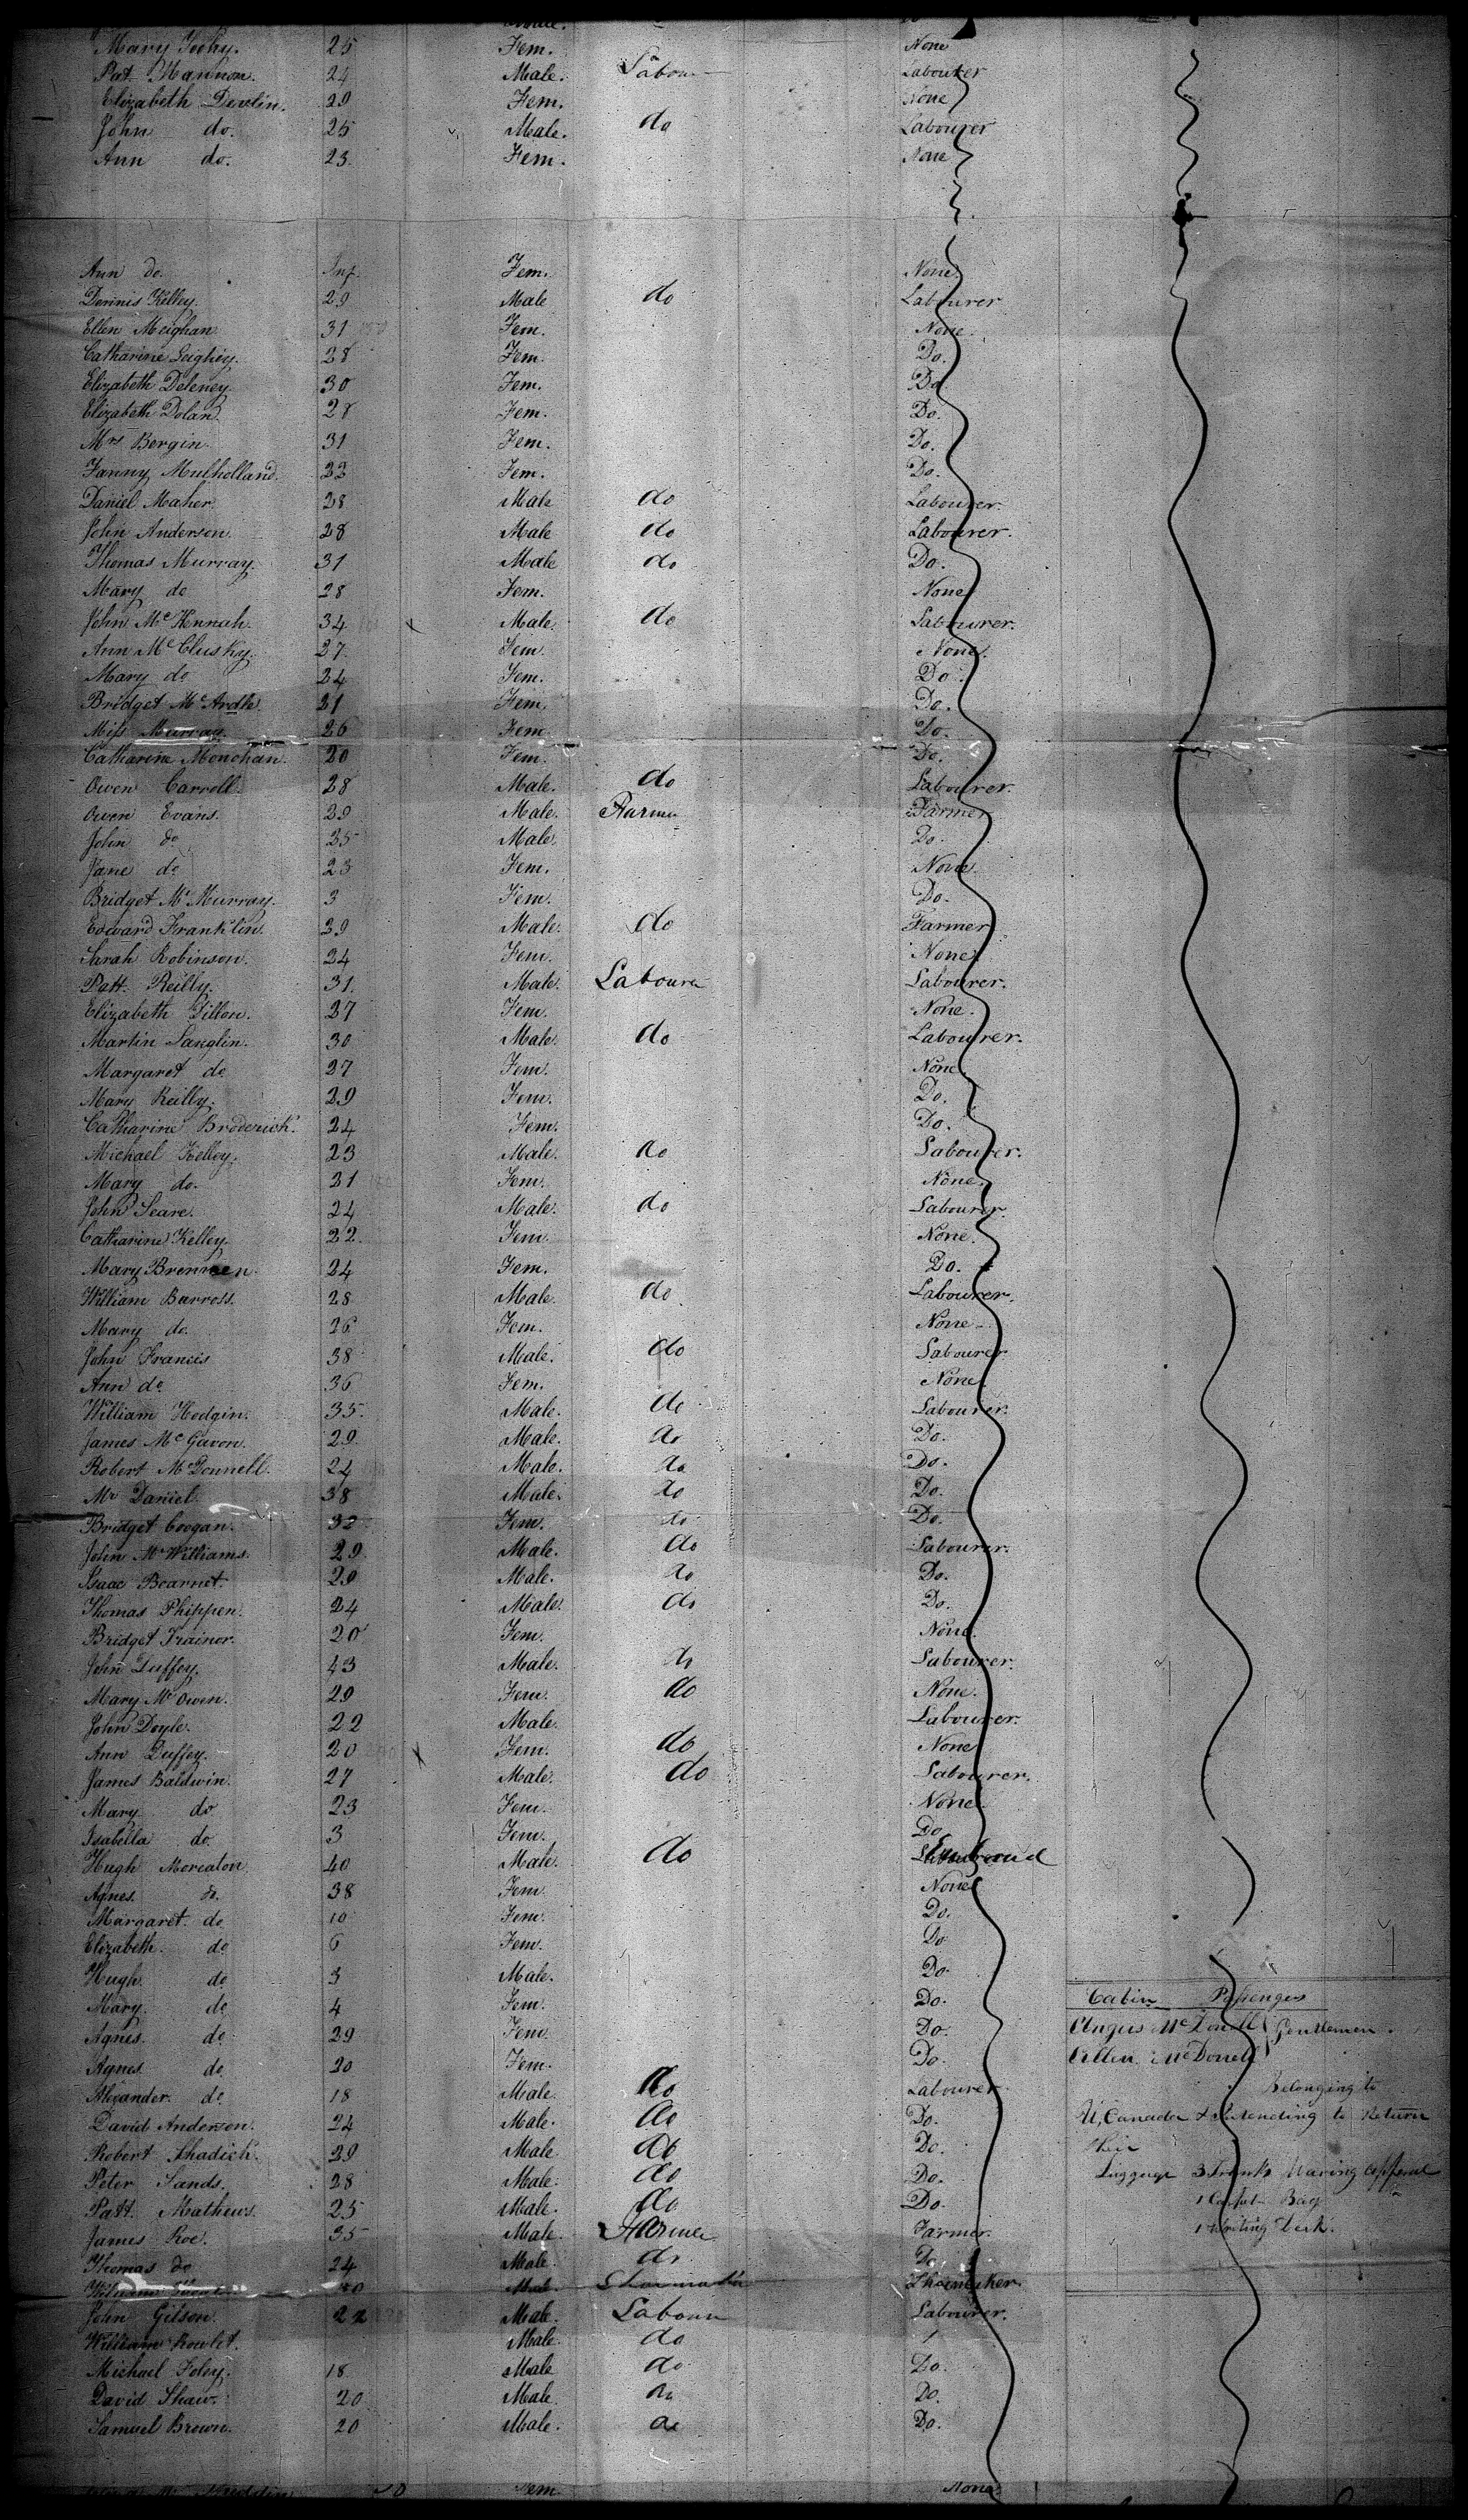 Mary Toohy. 25 Fem. None
Pat. Mannion. 24 Male. Labour Labourer
Elizabeth Devlin. 29 Fem. None
John do. 25 Male. do Labourer
Ann do. 23 Fem. None
Ann do. Inf. Fem. None.
Dennis Kelley. 29 Male do Labourer
Ellen Meighan 31 Fem. None.
Catharine Leighey. 28 Fem. Do.
Elizabeth Deleney. 30 Fem. Do
Elizabeth Doland. 28 Fem. Do.
Mrs Bergin. 31 Fem. Do.
Fanny Mulholland. 22 Fem. Do.
Daniel Maher. 28 Male do Labourer.
John Anderson. 28 Male do Labourer.
Thomas Murray. 31 Male do Do.
Mary do 28 Fem. None
John McKennah. 34 Male. do Labourer.
Ann McClusky. 27. Fem. None.
Mary do 24 Fem. Do.
Bridget McArdle. 21 Fem. Do.
Miss Murray. 26 Fem. Do.
Catharine Monohan. 20 Fem. Do.
Owen Carroll. 28 Male. do Labourer.
Owen Evans. 29 Male. Farmer Farmer
John do 35 Male. Do.
Jane do 23 Fem. None.
Bridget McMurray. 3 Fem. Do.
Edward Franklin. 29 Male. do Farmer
Sarah Robinson. 24 Fem. None.
Patt. Reilly. 31. Male. Labourer Labourer.
Elizabeth Dillon. 27 Fem. None.
Martin Langlin. 30 Male. do Labourer.
Margaret do 27 Fem. None.
Mary Reilly. 29 Fem. Do.
Catharine Broderick. 24 Fem. Do.
Michael Kelley. 23 Male. do Labourer.
Mary do. 21 Fem. None.
John Seare. 24 Male. do Labourer.
Catharine Kelley. 22. Fem. None.
Mary Brennen. 24 Fem. Do.
William Barross. 28 Male. do Labourer.
Mary do. 26 Fem. None.
John Francis 38 Male. do Labourer
Ann do 36 Fem. None.
William Hodgin. 35. Male. do Labourer.
James McGavon. 29. Male. do Do.
Robert McDonnell. 24 Male. do Do.
Mr Daniel 38 Male. do Do.
Bridget Coogan. 32 Fem. do Do.
John McWilliams. 29. Male. do Labourer.
Isaac Bearnet. 29 Male. do Do.
Thomas Phippen. 24 Male. do Do.
Bridget Trainor. 20 Fem. None.
John Duffey. 43 Male. do Labourer.
Mary McOwen. 29 Fem. do None.
John Doyle. 22 Male. Labourer.
Ann Duffey. 20 Fem. do None
James Baldwin. 27 Male. do Labourer.
Mary do 23 Fem. None.
Isabella do 3 Fem. Do
Hugh Moreaton. 40 Male. do
Agnes. do. 38 Fem. None
Margaret. do 10 Fem. Do.
Elizabeth. do 6 Fem. Do
Hugh. do 3 Male. Do
Mary. do 4 Fem. Do.
Agnes. do 29 Fem. Do.
Agnes. do 20 Fem. Do.
Alexander. do. 18 Male. do Labourer
David Anderson. 24 Male. do Do.
Robert Shadick. 29 Male do Do.
Peter Sands. 28 Male. do Do.
Patt. Mathews. 25 Male. do Do.
James Roe. 35 Male. Farmer Farmer.
Thomas do 24 Male. do Do
William Male Shoemaker Shoemaker.
John Gilson. 22 Male. Labour Labourer.
William Rowlet. Male. do
Michael Foley. 18 Male do Do.
David Shaw. 20 Male. do Do.
Samuel Brown. 20 Male. do Do.
Fem. None
Cabin Passengers
Angus McDonell Gentlemen.
Allen McDonell
Belonging to
U, Canada & Intending to Return
their
Luggage 3 Trunks Waring Apperal
1 Carpet Bag
1 Writing Desk.